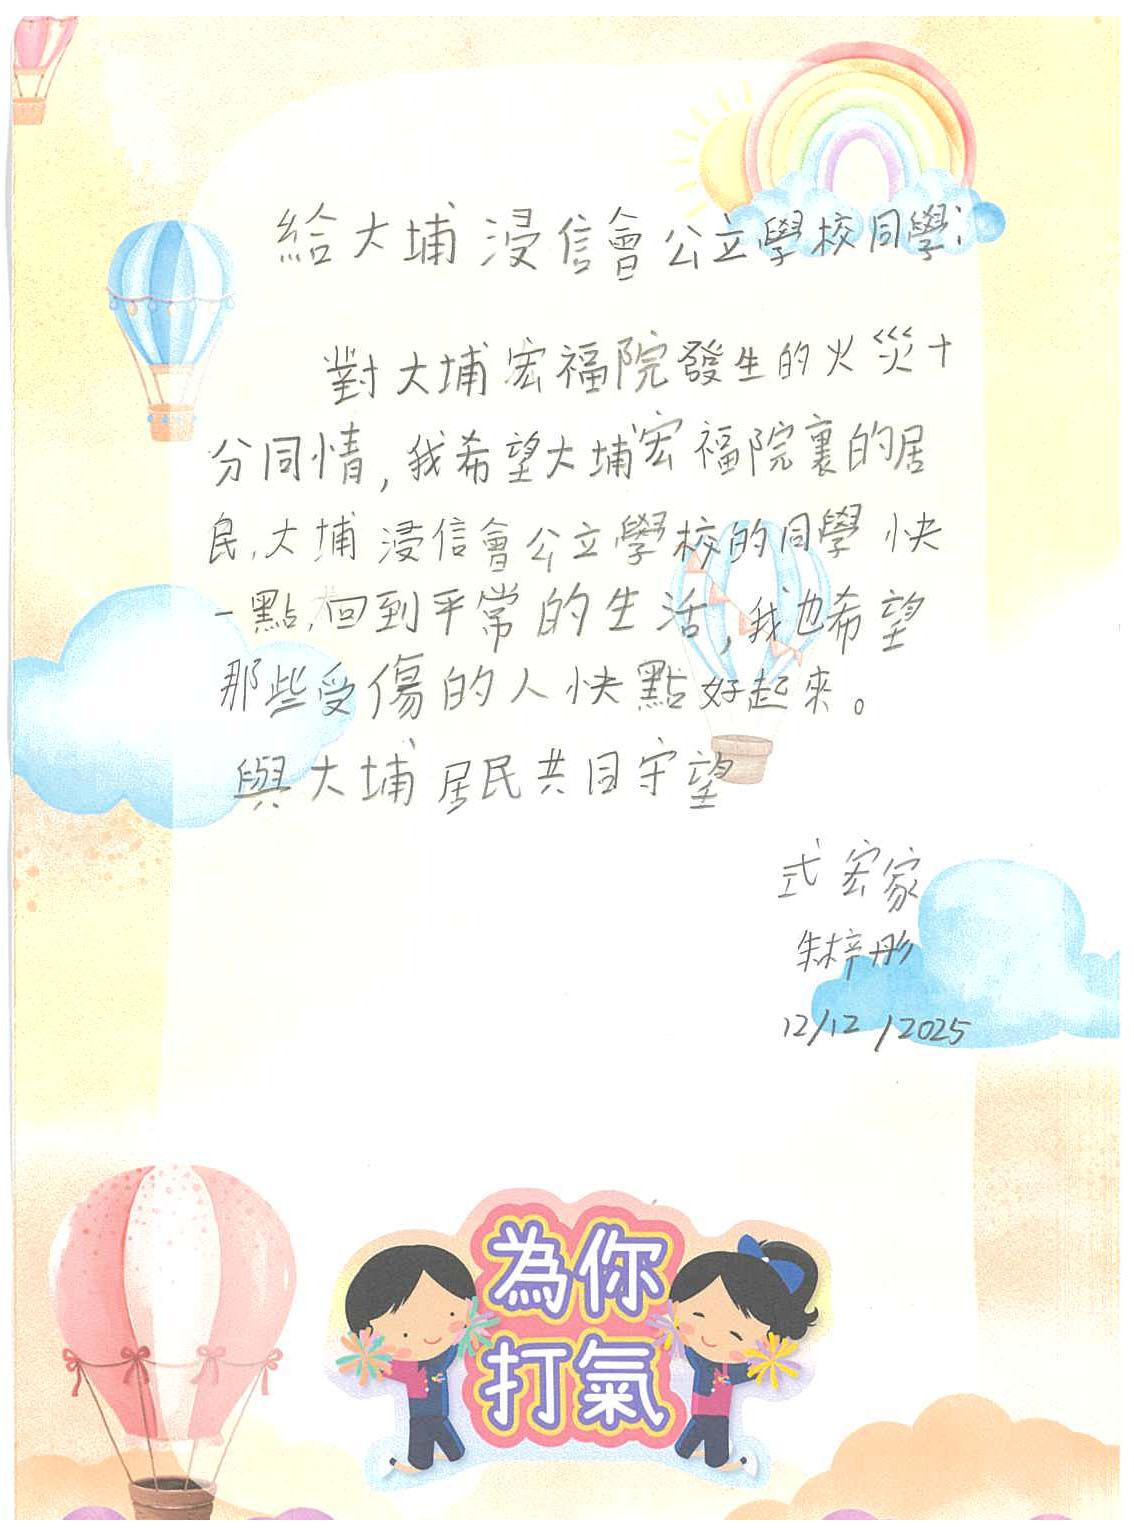 給大埔浸信會公立學校同學：
對大埔宏福院發生的火災十
分同情,我希望大埔宏福院裏的居
民,大埔浸信會公立學校的同學快
一點,回到平常的生活,我也希望
那些受傷的人快點好起來。
與大埔居民共同守望
式宏家
朱梓彤
12/12/2025
為你
打氣